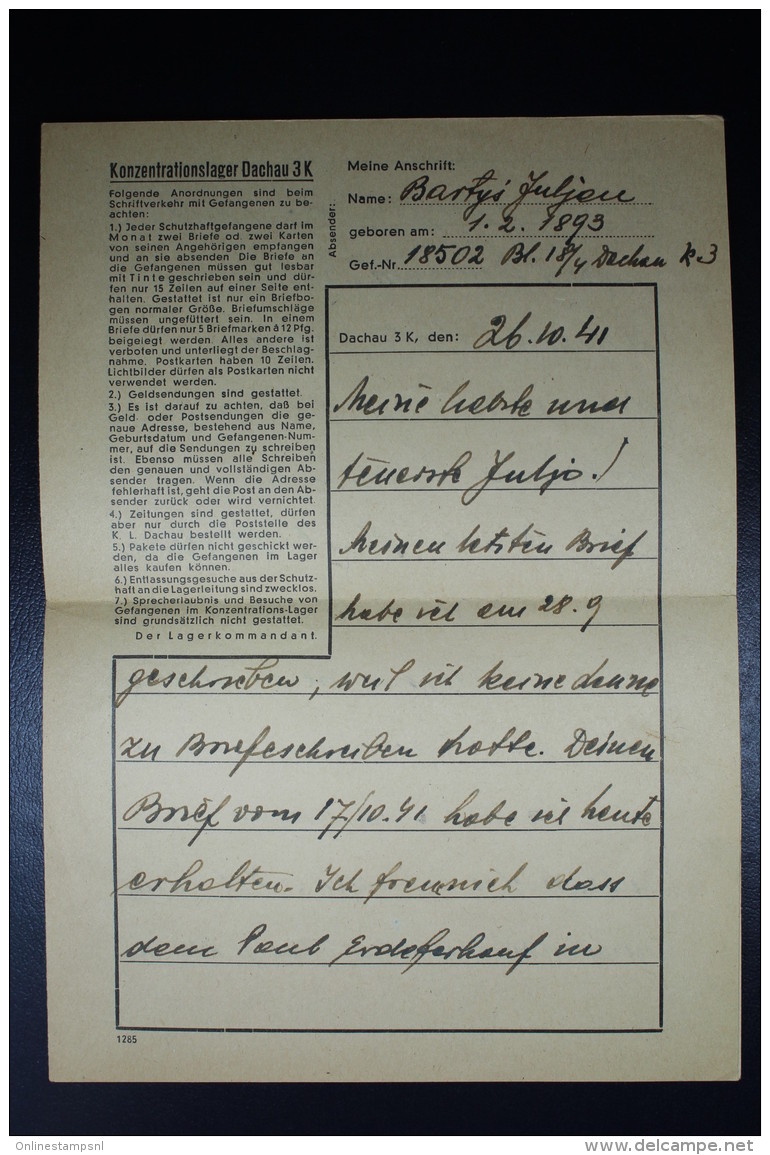 Konzentrationslager Dachau 3 K
Folgende Anordnungen sind beim
Schriftverkehr mit Gefangenen zu be-
achten:
1.) Jeder Schutzhaftgefangene darf im
Monat zwei Briefe od. zwei Karten
von seinen Angehörigen empfangen
und an sie absenden Die Briefe an
die Gefangenen müssen gut lesbar
mit Tinte geschrieben sein und dür-
fen nur 15 Zeilen auf einer Seite ent-
halten. Gestattet ist nur ein Briefbo-
gen normaler Größe. Briefumschläge
müssen ungefüttert sein. In einem
Briefe dürfen nur 5 Briefmarken à 12 Pfg.
beigelegt werden. Alles andere ist
verboten und unterliegt der Beschlag-
nahme. Postkarten haben 10 Zeilen.
Lichtbilder dürfen als Postkarten nicht
verwendet werden.
2.) Geldsendungen sind gestattet.
3.) Es ist darauf zu achten, daß bei
Geld- oder Postsendungen die ge-
naue Adresse, bestehend aus Name,
Geburtsdatum und Gefangenen-Num-
mer, auf die Sendungen zu schreiben
ist. Ebenso müssen alle Schreiben
den genauen und vollständigen Ab-
sender tragen. Wenn die Adresse
fehlerhaft ist, geht die Post an den Ab-
sender zurück oder wird vernichtet.
4.) Zeitungen sind gestattet, dürfen
aber nur durch die Poststelle des
K. L. Dachau bestellt werden.
5.) Pakete dürfen nicht geschickt wer-
den, da die Gefangenen im Lager
alles kaufen können.
6.) Entlassungsgesuche aus der Schutz-
haft an die Lagerleitung sind zwecklos.
7.) Sprecherlaubnis und Besuche von
Gefangenen im Konzentrations-Lager
sind grundsätzlich nicht gestattet.
Der Lagerkommandant.
Absender:
Meine Anschrift:
Name: Bartyś Juljan
geboren am: 1. 2. 1893
Gef.-Nr. 18502 Bl. 18/4 Dachau K. 3
Dachau 3 K, den: 26.10.41
Meine liebste und
teuerste Juljo!
Meinen letzten Brief
habe ich am 28.9
geschrieben, weil ich keine
zu Briefeschreiben hatte. Deinen
Brief vom 17/10.41 habe ich heute
erhalten. Ich freu mich dass
dem Paul in
1285
Onlinestampsnl
delcampe.net